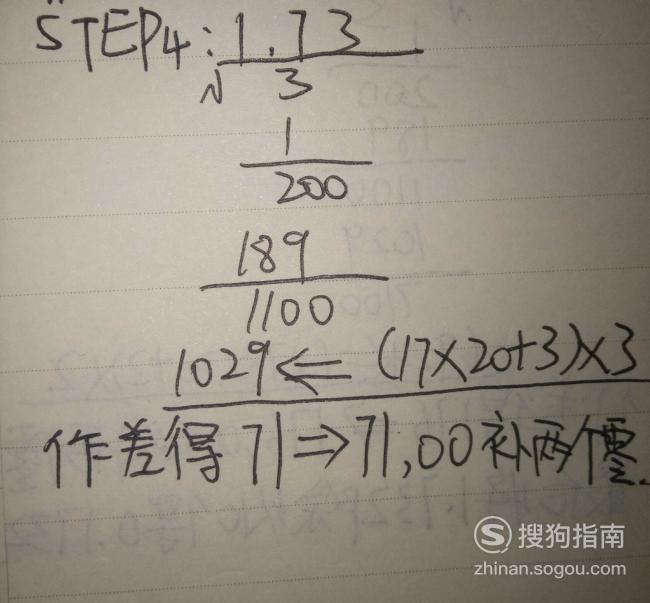 STEP4: 1.73
√3
1
200
189
1100
1029⇐(17×20+3)×3
作差得71⇒71,00补两个零.
搜狗指南
zhinan.sogou.com